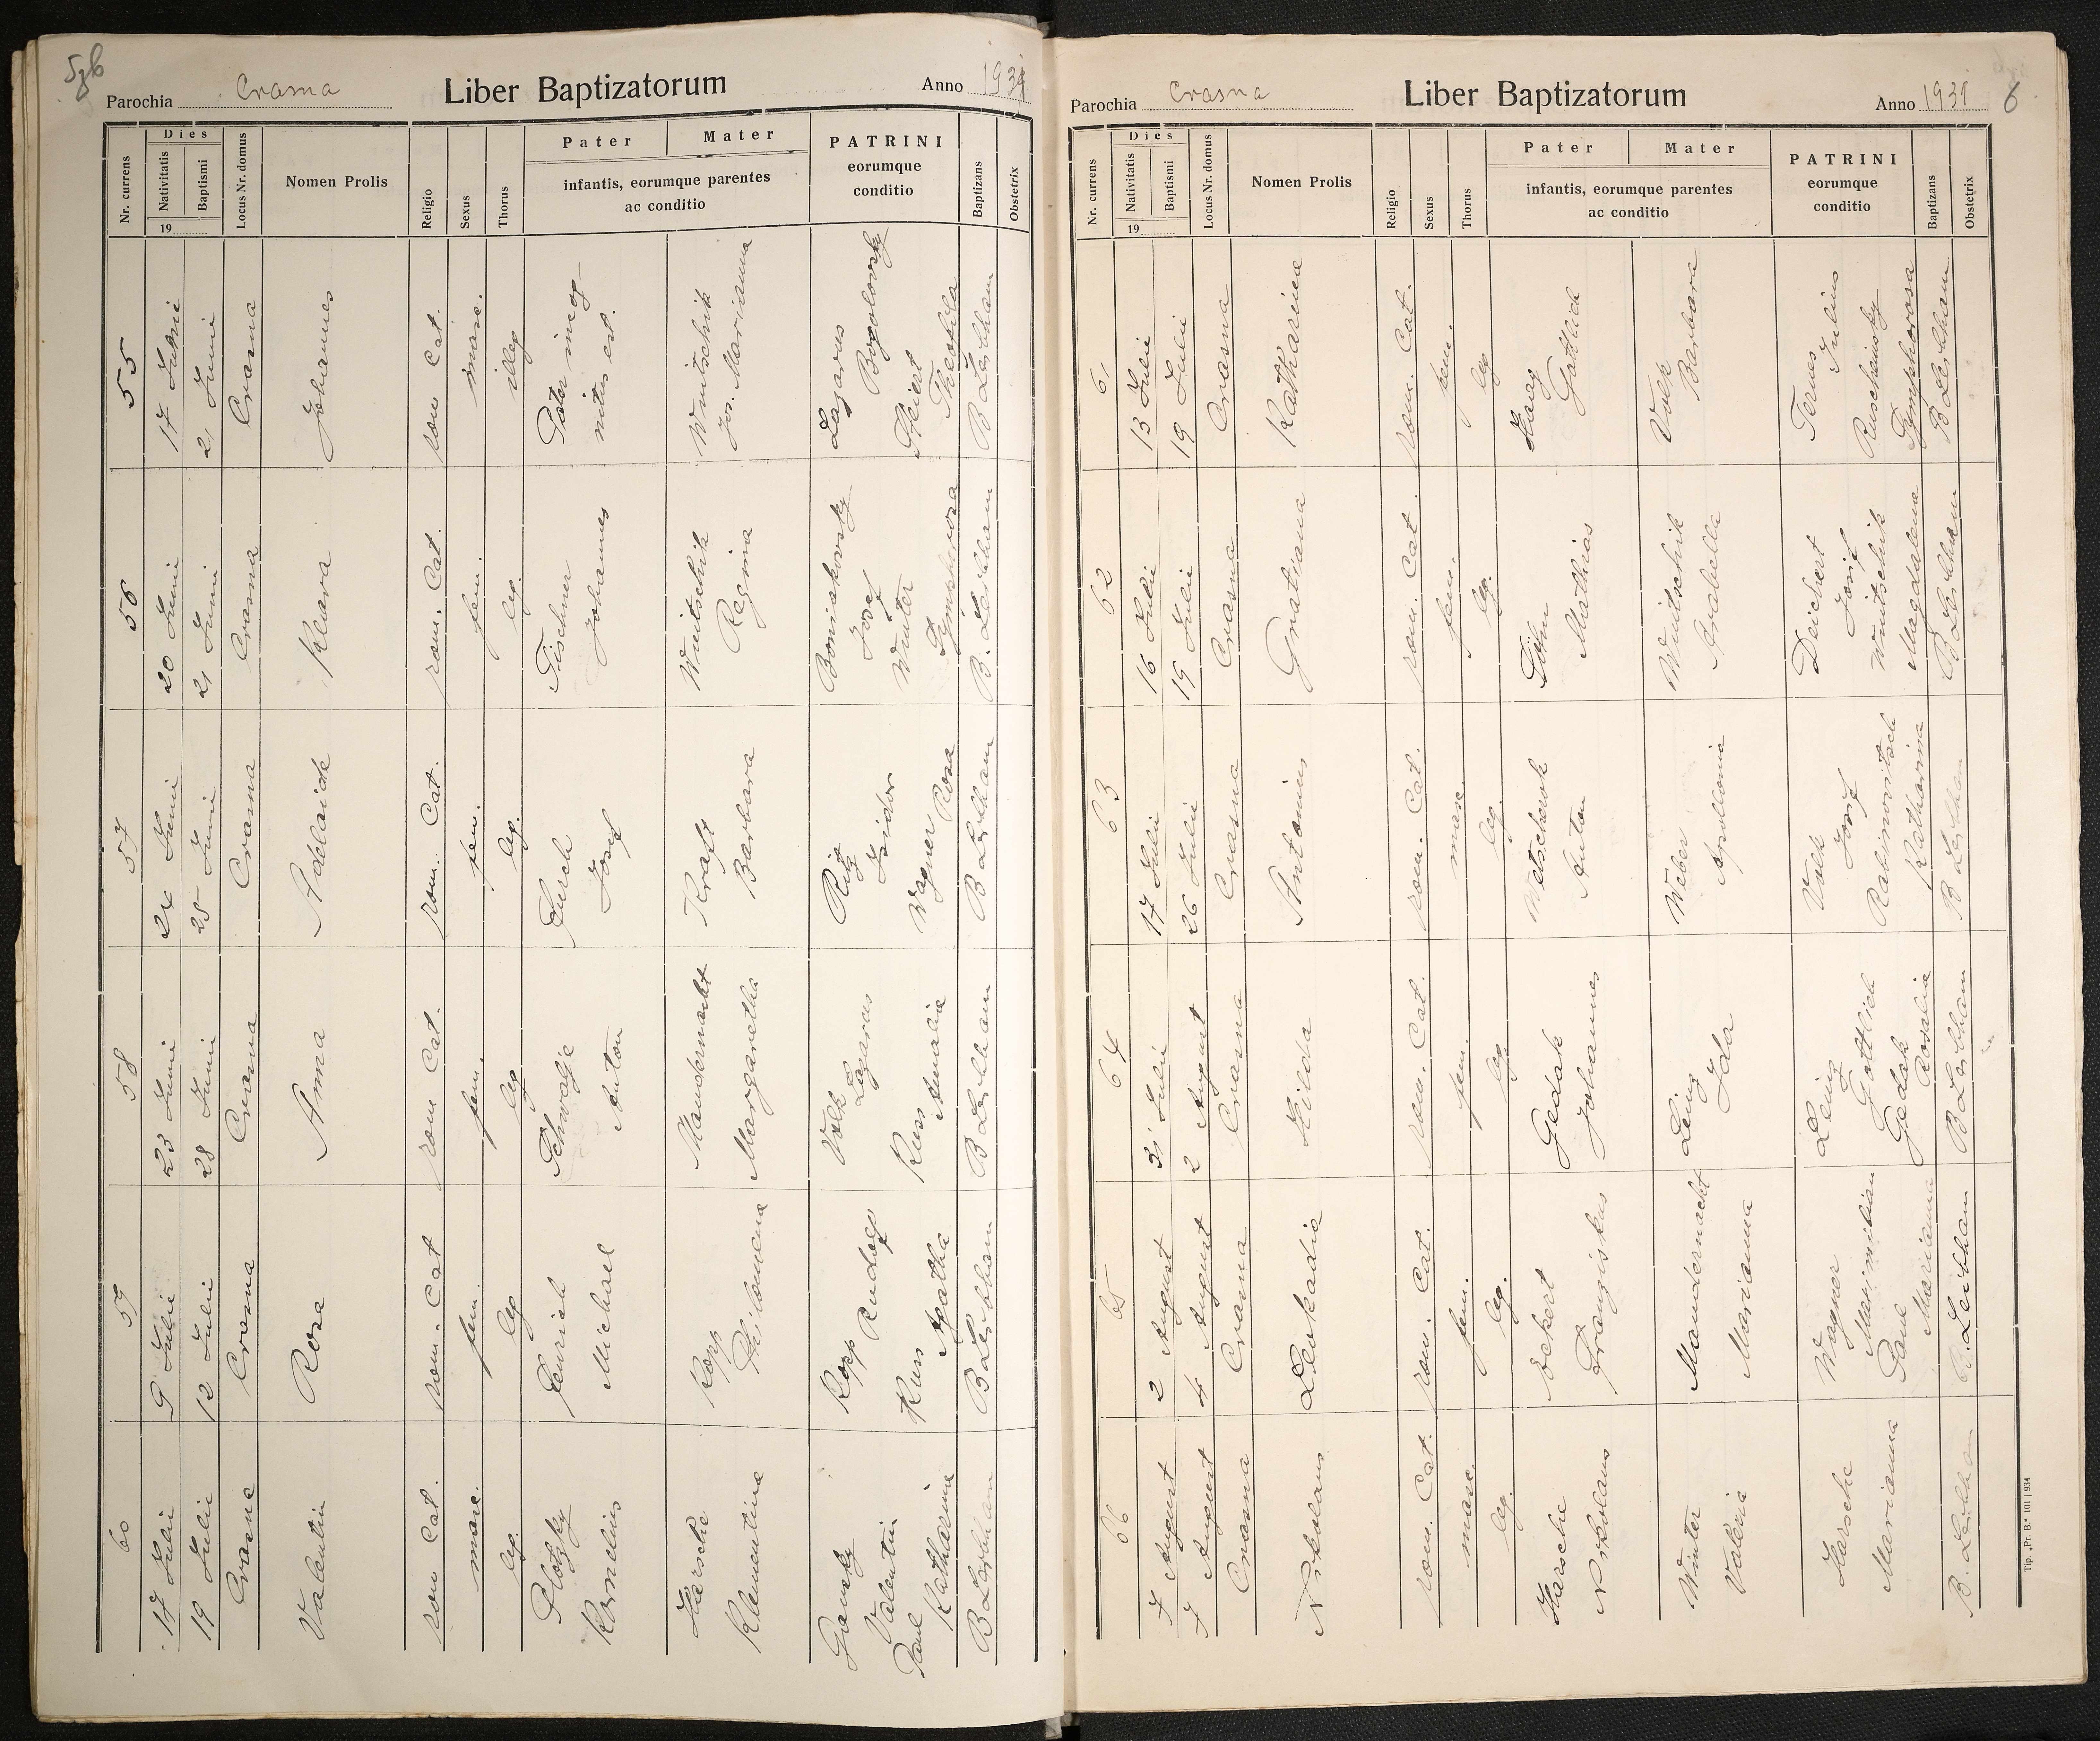 Parochia Crasna Liber Baptizatorum Anno 1939
Nr. currens
Dies
Nativitatis
Baptismi
19
Locus Nr. domus
Nomen Prolis
Religio
Sexus
Thorus
Pater
Mater
infantis, eorumque parentes
ac conditio
PATRINI
eorumque
conditio
Baptizans
Obstetrix
55
17 Junii
21 Junii
Crasna
Johannes
rom Cat.
masc.
illeg
Pater incog-
nitus est.
Wuitschik
Marianna
Lazarus
Bogolowsky
Theophila
B Leibham
56
20 Junii
21 Junii
Crasna
Klara
rom. Cat.
fem.
leg.
Fischner
Johannes
Wuitschik
Regina
Boniakowsky
Josef
Winter
Symphorosa
B. Leibham
57
Junii
25 Junii
Crasna
Adelaide
rom. Cat.
fem.
leg.
Furch
Josef
Kraft
Barbara
Ritz
Isidor
Wagner Rosa
B Leibham
58
23 Junii
28 Junii
Crasna
Anna
rom Cat.
fem.
leg
Schwalje
Anton
Mandernacht
Margaretha
Volk
Lazarus
Russ
Amalia
B Leibham
59
9 Julii
12 Julii
Crasna
Rosa
rom. Cat
fem.
leg
Jenrich
Michael
Kopp
Philomena
Kopp
Rudolf
Kuss
Agatha
B Leibham
60
17 Julii
19 Julii
Crasna
Valentin
rom Cat.
masc.
leg.
Plotzky
Kornelius
Harsche
Klementina
Gansky
Valentin
Paul
Katharina
B Leibham
Parochia Crasna Liber Baptizatorum Anno 1939
Nr. currens
Dies
Nativitatis
Baptismi
19
Locus Nr. domus
Nomen Prolis
Religio
Sexus
Thorus
Pater
Mater
infantis, eorumque parentes
ac conditio
PATRINI
eorumque
conditio
Baptizans
Obstetrix
61
13 Julii
19 Julii
Crasna
Katharina
rom. Cat.
fem.
leg
Haag
Gottlieb
Volk
Barbara
Ternes
Julius
Ruschinsky
Symphorosa
B Leibham
62
16 Julii
19 Julii
Crasna
Gratiana
rom. Cat.
fem.
leg.
Söhn
Mathias
Wuitschik
Arabella
Deichert
Josif
Wuitschik
Magdalena
B Leibham
63
17 Julii
26 Julii
Crasna
Antonius
rom. Cat.
masc.
leg.
Anton
Weber
Apollonia
Volk
Josef
Rabinowitsch
Katharina
B Leibham
64
31 Julii
2 August
Crasna
Hilda
rom. Cat.
fem.
leg.
Gedak
Johannes
Leinz
Ida
Leinz
Gottlieb
Gedak
Rosalia
B Leibham
65
2 August
4 August
Crasna
Leukadia
rom. Cat.
fem.
leg.
Eckert
Franziskus
Mandernacht
Marianna
Wagner
Maximilian
Paul
Marianna
B. Leibham
66
7 August
7 August
Crasna
Nikolaus
rom. Cat.
masc.
leg.
Harsche
Nikolaus
Winter
Valeria
Harsche
Marianna
B. Leibham
Tip. „Pr. B." 101 | 934